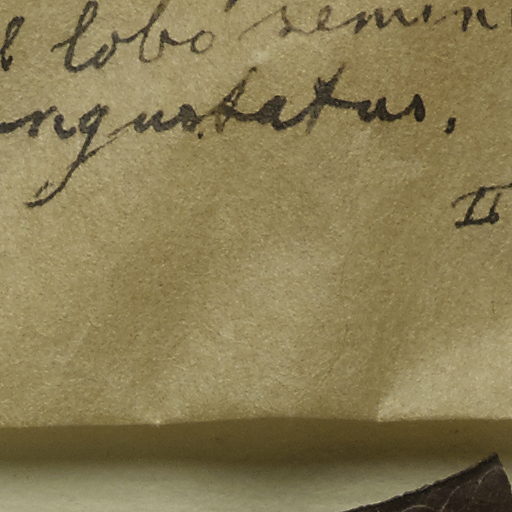 lobo semin
angustatus.
II